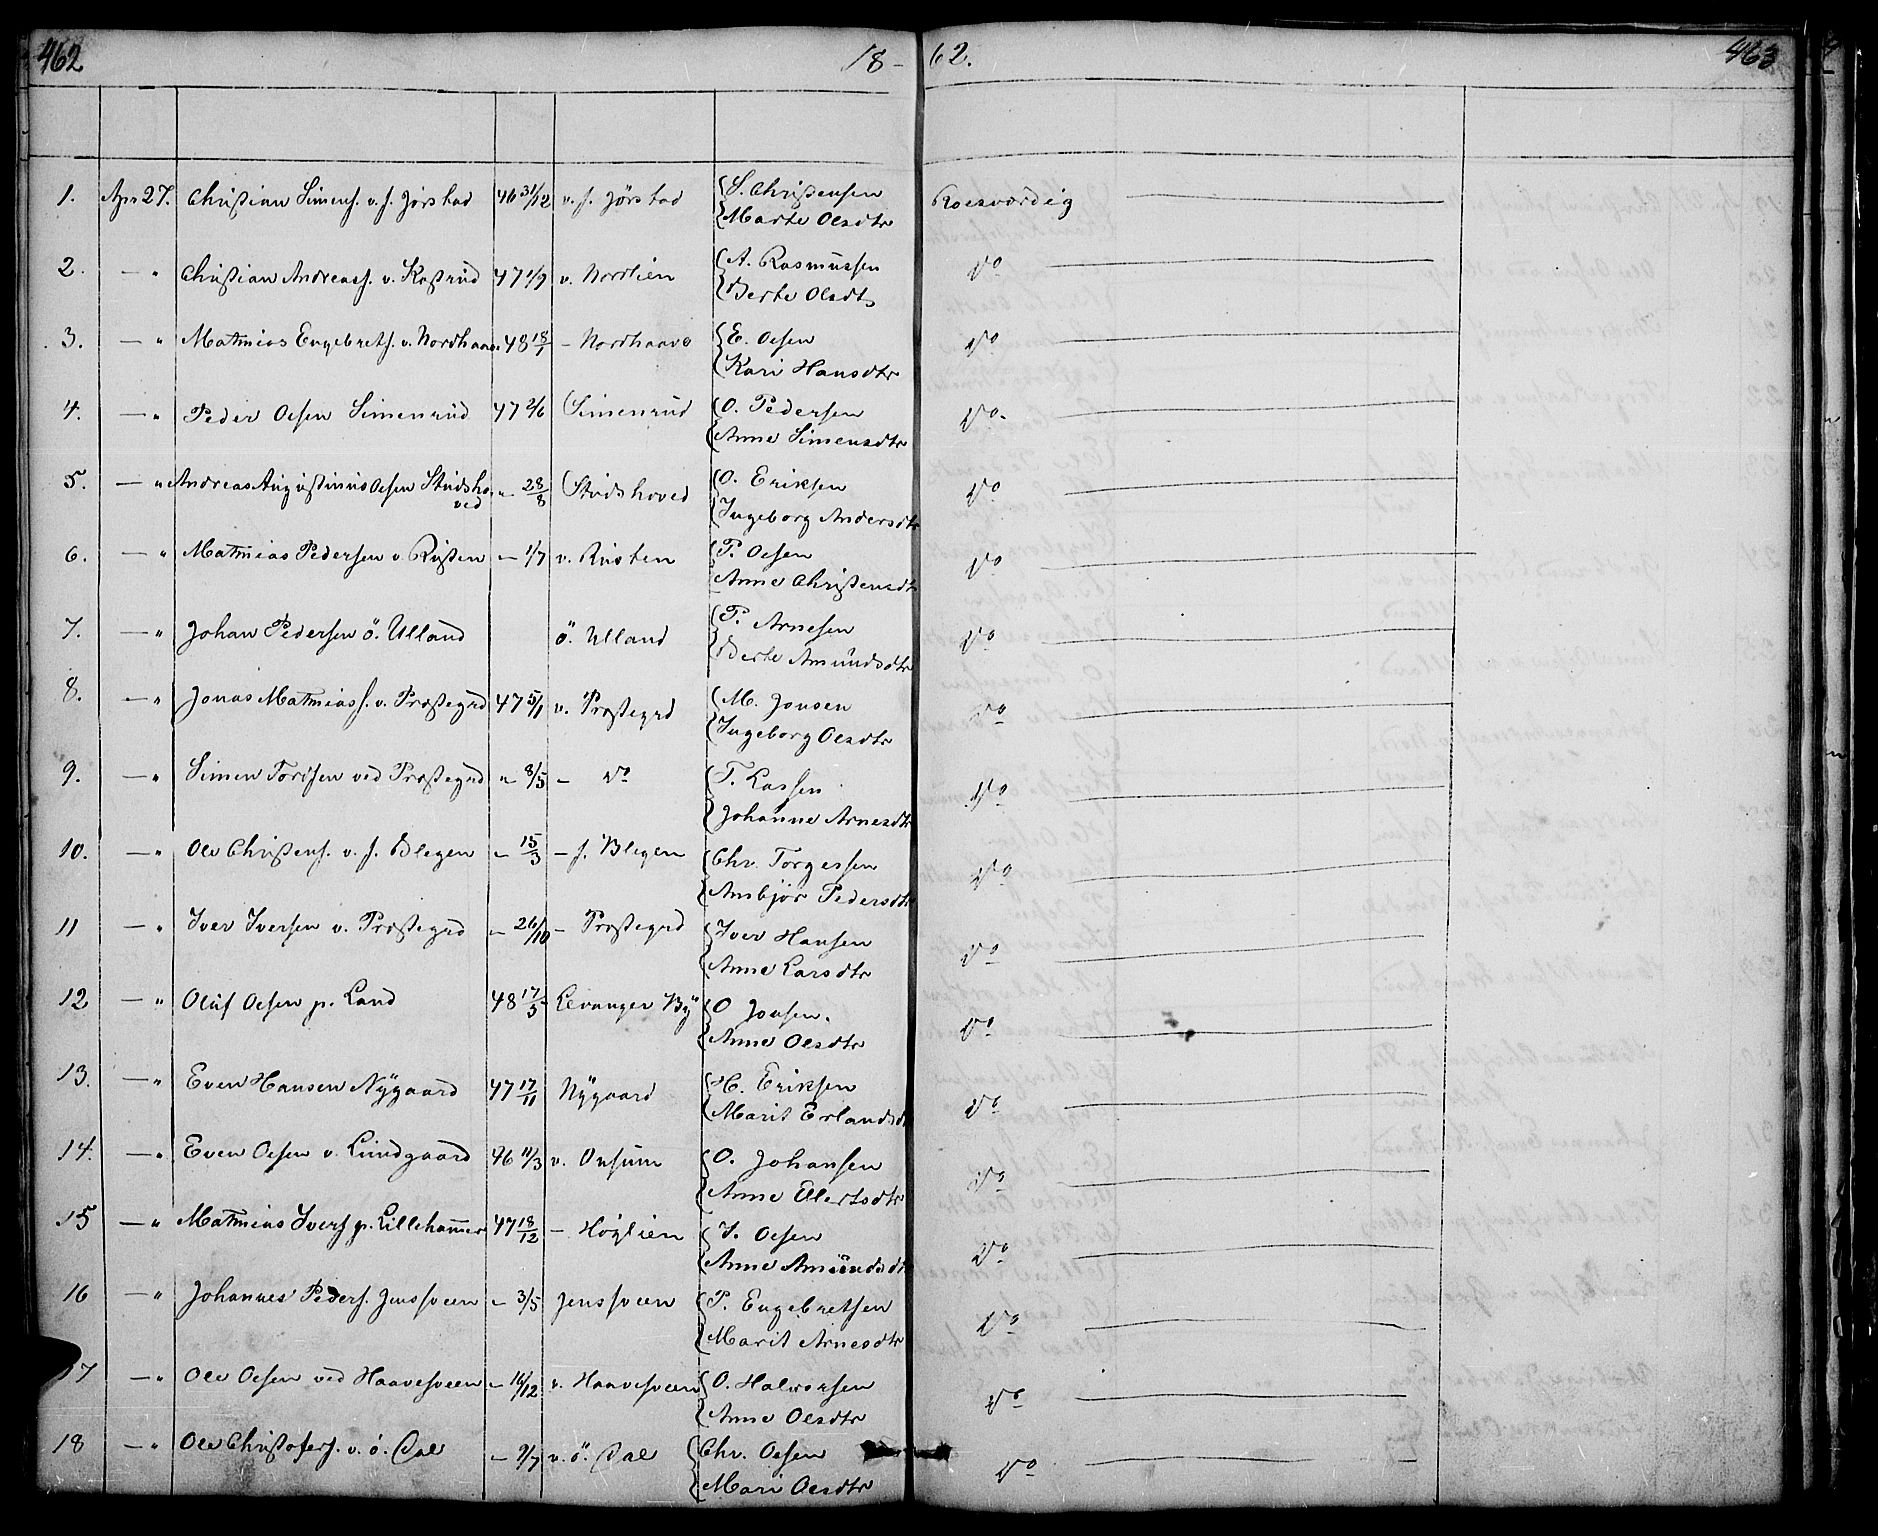 462 18- 62. 463
1. Apr 27. Christian Simens. v. s. Jørstad 46 31/12 v. s. Jørstad S. Christensen Roesværdig
Marte Olsdtr
2. — " Christian Andreass. v. Kostrud 47 1/9 v. Nordlien A. Rasmussen Do
Berte Olsdtr
3. — " Mathias Engebrets. v. Nordhaave 48 18/1 — Nordhaave E. Olsen Do
Kari Hansdtr
4. — " Peder Olsen Simenrud 47 2/6 Simenrud O. Pedersen Do.
Anne Simensdtr
5. — " Andreas Augustinus Olsen Studsho- " 28/8 Studshoved O. Eriksen Do
ved Ingeborg Andersdtr
6. — " Mathias Pedersen v. Rusten — 1/7 v. Rusten P. Olsen Do
Anne Christensdtr
7. — " Johan Pedersen ö. Ulland ö. Ulland P. Arnesen Do
Berte Amundsdtr
8. — " Jonas Mathiass. v. Præstegrd 47 5/1 v. Præstegrd M. Jonsen Do
Ingeborg Olsdtr
9. — " Simen Torstsen ved Præstegrd " 8/5 — Do T. Larsen Do
Johanne Arnesdtr
10. — " Ole Christens. v. s. Blegen " 15/3 — s. Blegen Chr. Torgersen Do
Ambjør Pedersdtr
11 — " Iver Iversen v. Præstegrd " 26/10 — Præstegrd Iver Hansen Do
Anne Larsdtr
12 — " Oluf Olsen p. Land 48 17/5 Levanger By O Jonsen. Do
Anne Olsdtr
13. — " Even Hansen Nÿgaard 47 17/11 Nÿgaard H. Eriksen Do
Marit Erlandsdtr
14. — " Even Olsen v. Lundgaard 46 11/3 v. Onsum O. Johansen Do
Anne Ellertsdtr
15 — " Mathias Ivers. p. Lillehammer 47 18/12 — Høglien I. Olsen Do
Anne Amundsdtr
16 — " Johannes Peders. Jenssveen " 3/5 Jenssveen P. Engebretsen Do
Marit Arnesdtr
17 — " Ole Olsen ved Haavesveen " 16/12 v. Haavesveen O. Halvorsen Do
Anne Olsdtr
18 — " Ole Christofers. v. ö. Dal " 9/7 v. ö. Dal Chr. Olsen Do
Mari Olsdtr